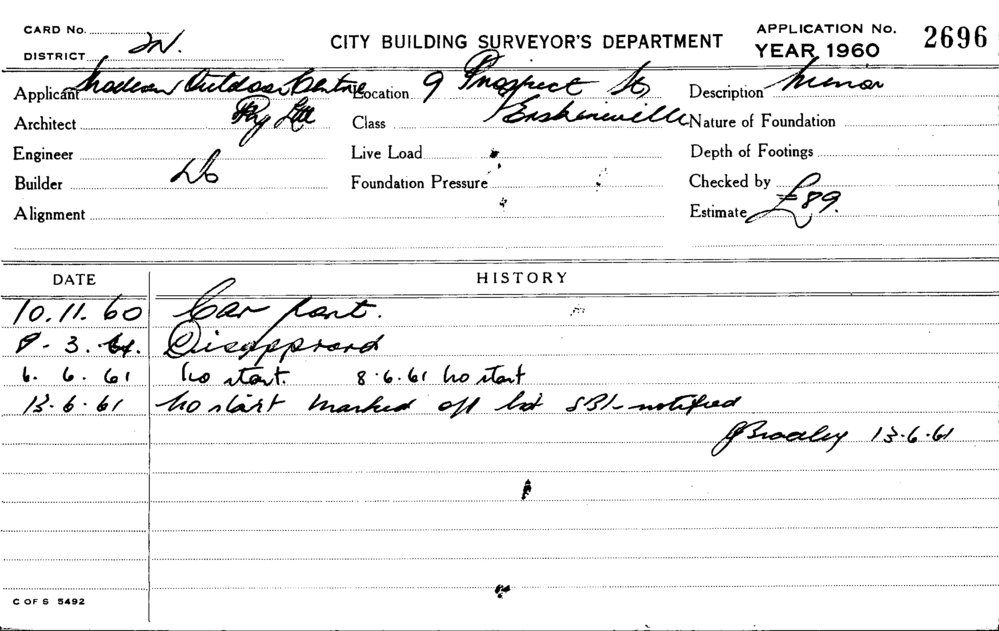 CARD No.
DISTRICT
CITY BUILDING SURVEYOR'S DEPARTMENT
APPLICATION No. 2696
YEAR 1960
Applicant Modern Outdoor Centre
Pty Ltd
Location 9 Prospect St,
Erskineville
Description Minor
Architect
Class
Nature of Foundation
Engineer
Live Load
Depth of Footings
Builder Do
Foundation Pressure
Checked by
Alignment
Estimate £89.
DATE HISTORY
10.11.60 Car port.
9-3. 61. Disapproved
6. 6. 61 No start. 8.6.61 No start
13.6.61 No start marked off SBI notified
13.6.61
C OF S 5492